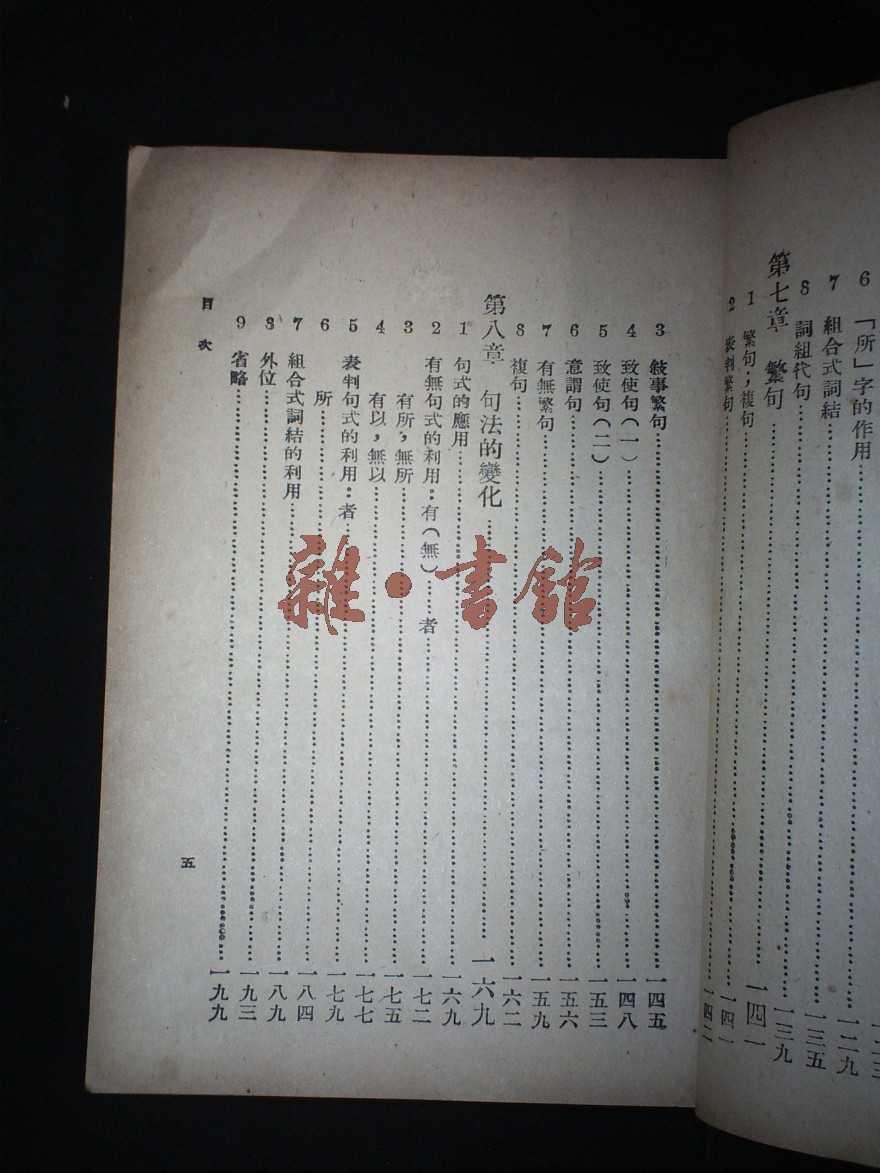 6 「所」字的作用……一二九
7 組合式詞結……一三五
8 詞組代句……一三九
第七章 繁句……一四一
1 繁句,複句……一四一
2 表判繁句……一四二
3 敍事繁句……一四五
4 致使句(一)……一四八
5 致使句(二)……一五三
6 意謂句……一五六
7 有無繁句……一五九
8 複句……一六二
第八章 句法的變化……一六九
1 句式的應用……一六九
2 有無句式的利用:有(無)……者……一七二
3 有所,無所……一七五
4 有以,無以……一七七
5 表判句式的利用:者……一七九
6 所……一八四
7 組合式詞結的利用……一八九
8 外位……一九三
9 省略……一九九
目次
五
雜·書館